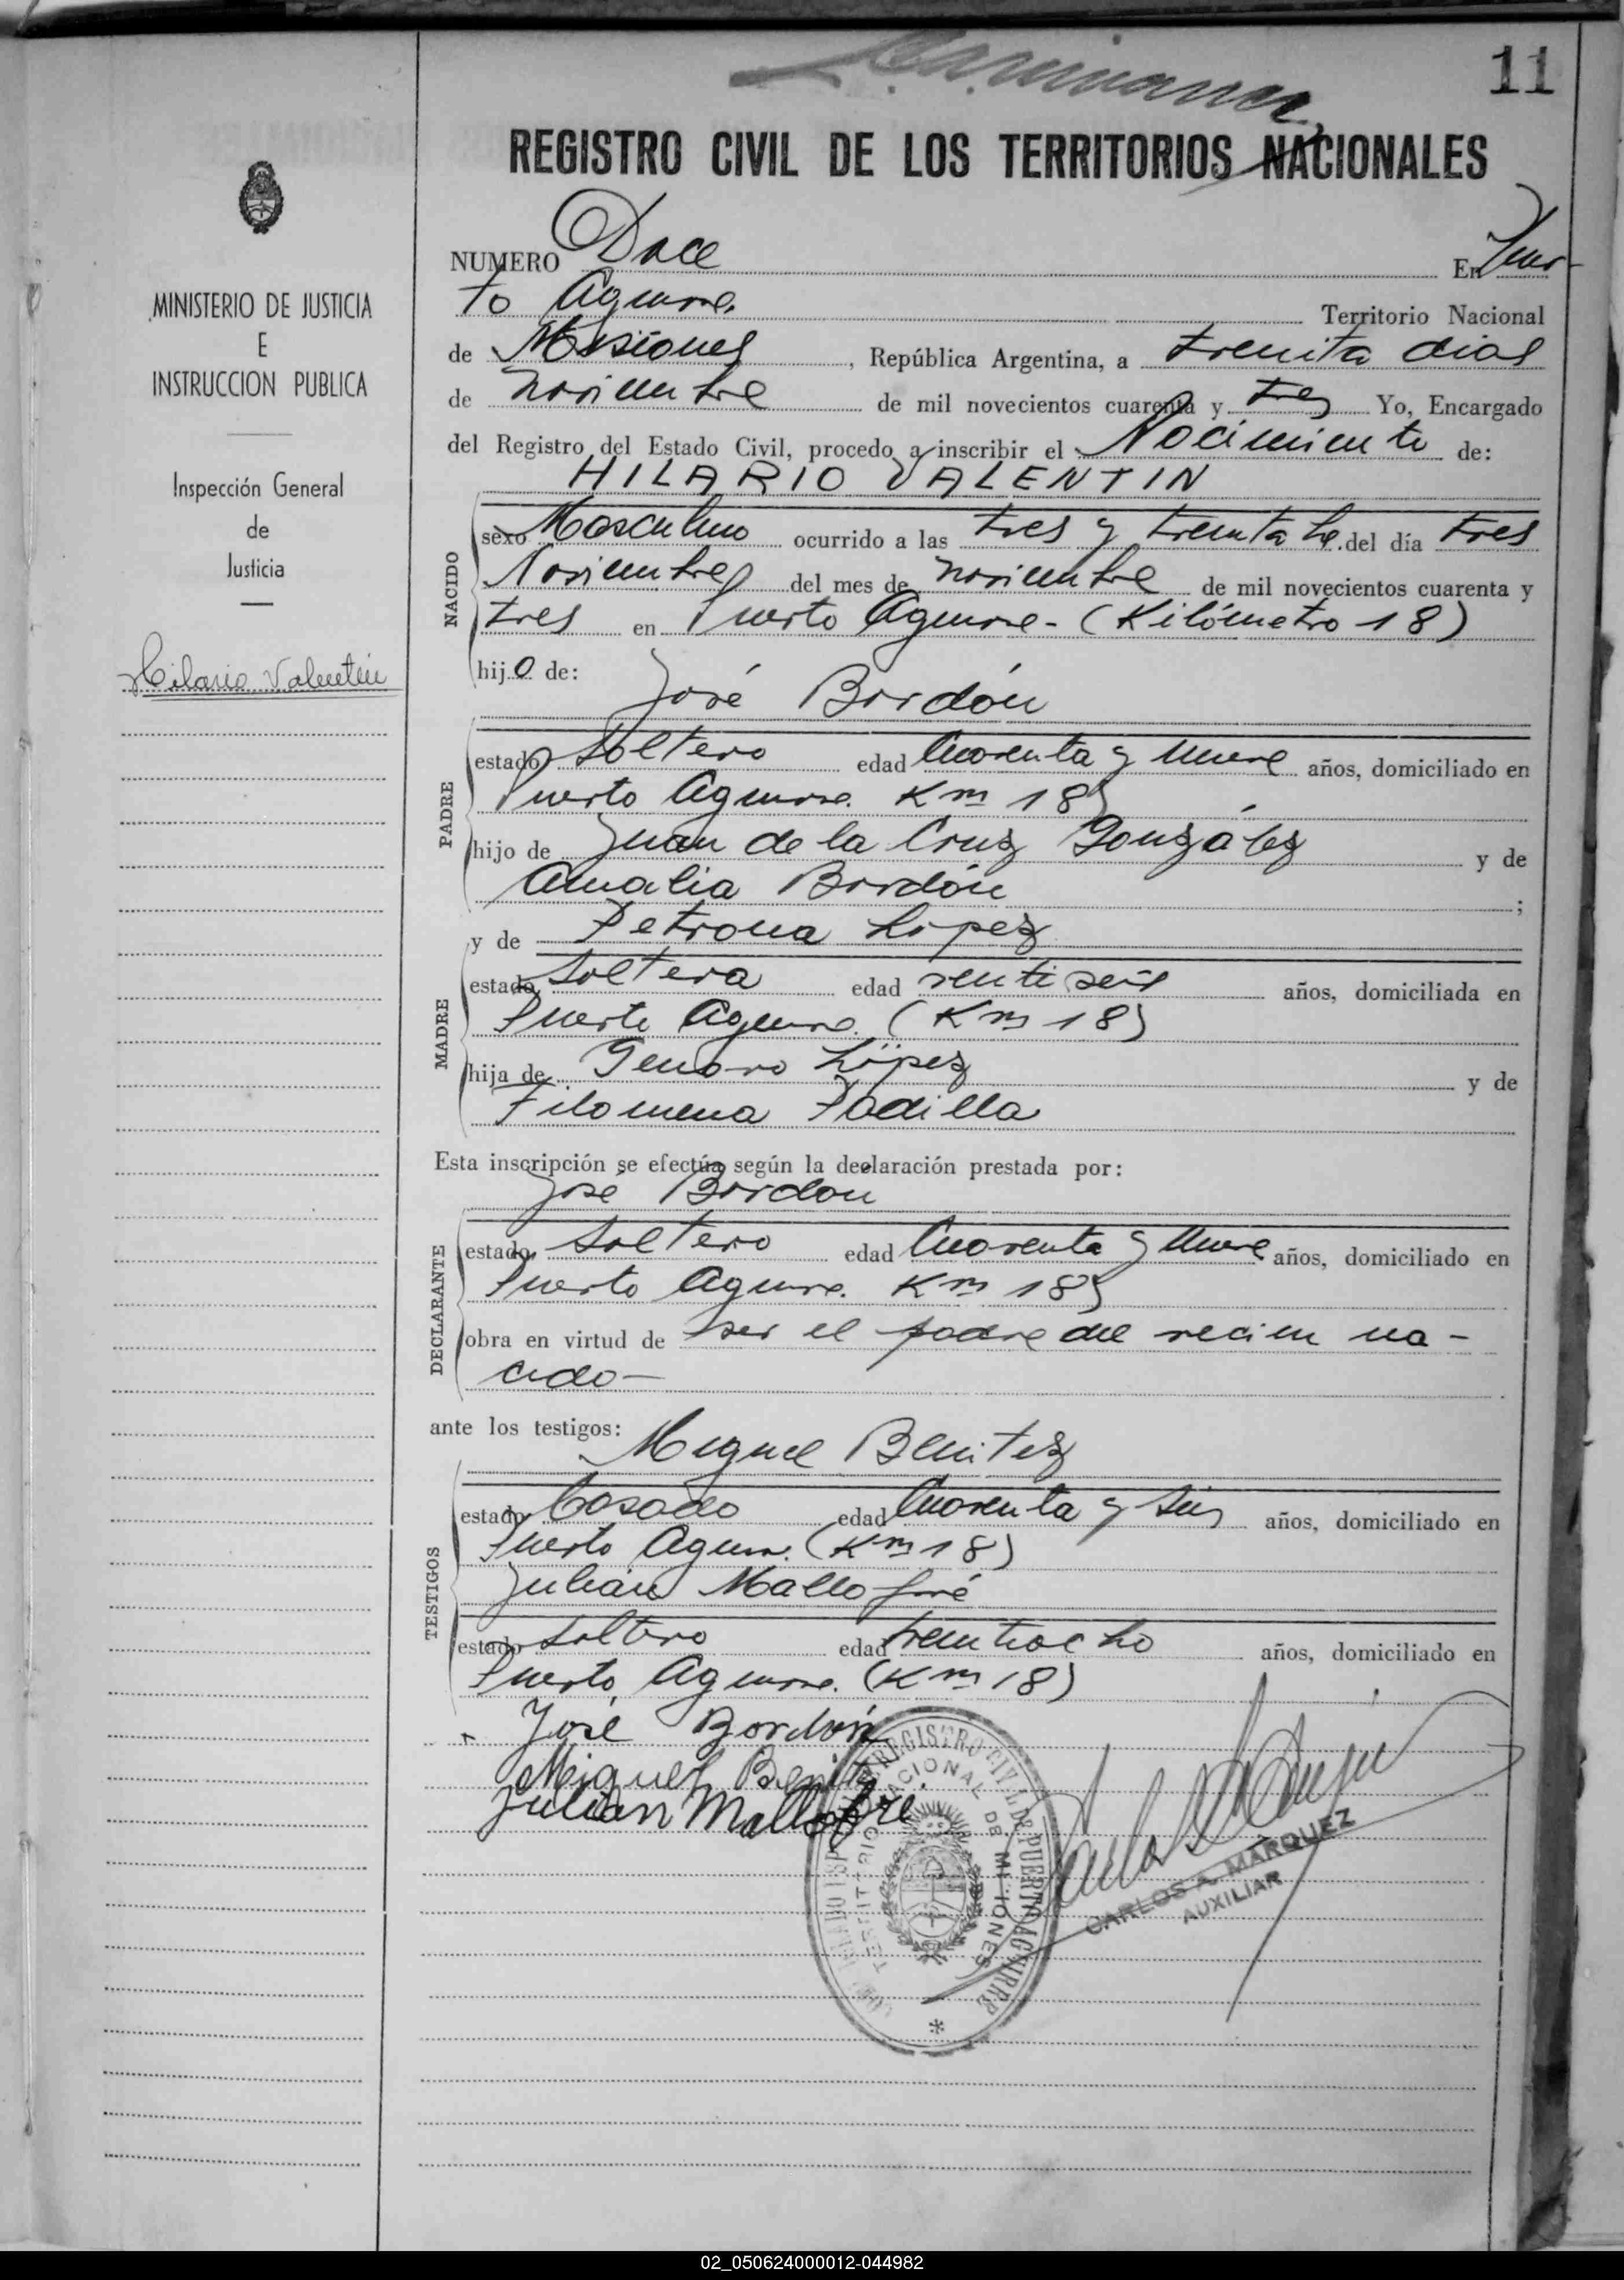 11
REGISTRO CIVIL DE LOS TERRITORIOS NACIONALES
NUMERO Doce En Puer-
to Aguirre. Territorio Nacional
de Misiones, República Argentina, a treinta dias
de noviembre de mil novecientos cuarenta y tres Yo, Encargado
del Registro del Estado Civil, procedo a inscribir el Nacimiento de:
HILARIO VALENTIN
NACIDO
sexo Masculino ocurrido a las tres y treinta hs. del día tres
Noviembre del mes de noviembre de mil novecientos cuarenta y
tres en Puerto Aguirre - (Kilómetro 18)
hijo de:
José Bordón
PADRE
estado soltero edad Cuarenta y nueve años, domiciliado en
Puerto Aguirre. Km 18)
hijo de Juan de la Cruz González y de
Amalia Bordón ;
y de Petrona López
MADRE
estado soltera edad ventiseis años, domiciliada en
Puerto Aguirre. (Km 18)
hija de Genaro López y de
Filomena Padilla
Esta inscripción se efectúa según la declaración prestada por:
José Bordon
DECLARANTE
estado soltero edad Cuarenta y nueve años, domiciliado en
Puerto Aguirre. Km 18)
obra en virtud de ser el padre del recien na-
cido-
ante los testigos:
Miguel Benitez
TESTIGOS
estado Casado edad Cuarenta y seis años, domiciliado en
Puerto Aguirre. (Km 18)
Julián Mallofré
estado soltero edad treintiocho años, domiciliado en
Puerto Aguirre. (Km 18)
José Bordón
Miguel Benitez
Julián Mallofré
REGISTRO CIVIL DE PUERTO AGUIRRE
TERRITORIO NACIONAL DE MISIONES
CARLOS A. MARQUEZ
AUXILIAR
MINISTERIO DE JUSTICIA
E
INSTRUCCION PUBLICA
Inspección General
de
Justicia
Hilario Valentin
02_050624000012-044982